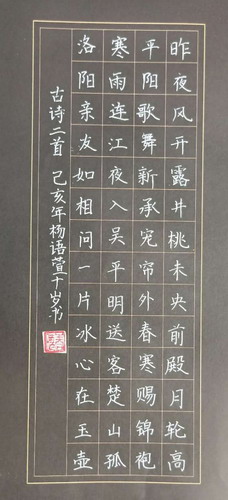 昨夜风开露井桃未央前殿月轮高
平阳歌舞新承宠帘外春寒赐锦袍
寒雨连江夜入吴平明送客楚山孤
洛阳亲友如相问一片冰心在玉壶
古诗二首 己亥年杨语萱十岁书